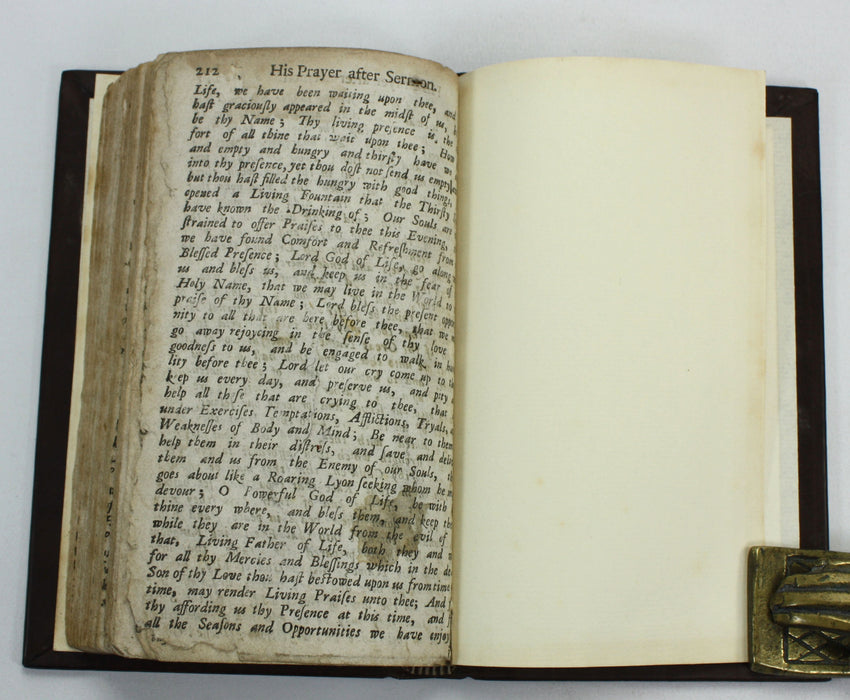 212 His Prayer after Sermon.
Life, we have been waiting upon thee, and
haſt graciouſly appeared in the midſt of us,
be thy Name; Thy living preſence is the
fort of all thine that wait upon thee; How
and empty and hungry and thirſty have we
into thy preſence, yet thou doſt not ſend us empty
but thou haſt filled the hungry with good things,
opened a Living Fountain that the Thirſty
have known the Drinking of; Our Souls are
ſtrained to offer Praiſes to thee this Evening,
we have found Comfort and Refreſhment from
Bleſſed Preſence; Lord God of Life, go along
us and bleſs us, and keep us in the fear of
Holy Name, that we may live in the World to
praiſe of thy Name; Lord bleſs the preſent
nity to all that are here before thee, that we
go away rejoycing in the ſenſe of thy love
goodneſs to us, and be engaged to walk in
lity before thee; Lord let our cry come up to
keep us every day, and preſerve us, and pity
help all thoſe that are crying to thee, that
under Exerciſes Temptations, Afflictions, Tryals,
Weakneſſes of Body and Mind; Be near to them
help them in their diſtreſs, and ſave and
them and us from the Enemy of our Souls,
goes about like a Roaring Lyon ſeeking whom he
devour; O Powerful God of Life, be with
thine every where, and bleſs them, and keep
while they are in the World from the evil of
that, Living Father of Life, both they and
for all thy Mercies and Bleſſings which in the
Son of thy Love thou haſt beſtowed upon us from time
time, may render Living Praiſes unto thee; And
thy affording us thy Preſence at this time, and
all the Seaſons and Opportunities we have